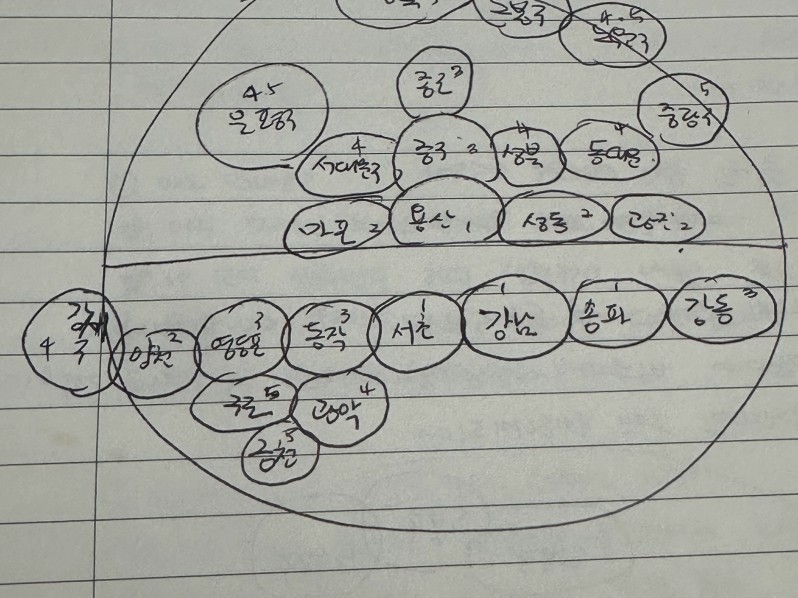 4.5
노원구
4.5
은평구
종로 3
5
중랑구
4
서대문구
중구 3
4
성북
4
동대문
마포 2
용산 1
성동 2
광진 2
강서구
4
양천 2
영등포 3
동작 3
서초 1
강남 1
송파 1
강동 3
구로 5
관악 4
금천 5